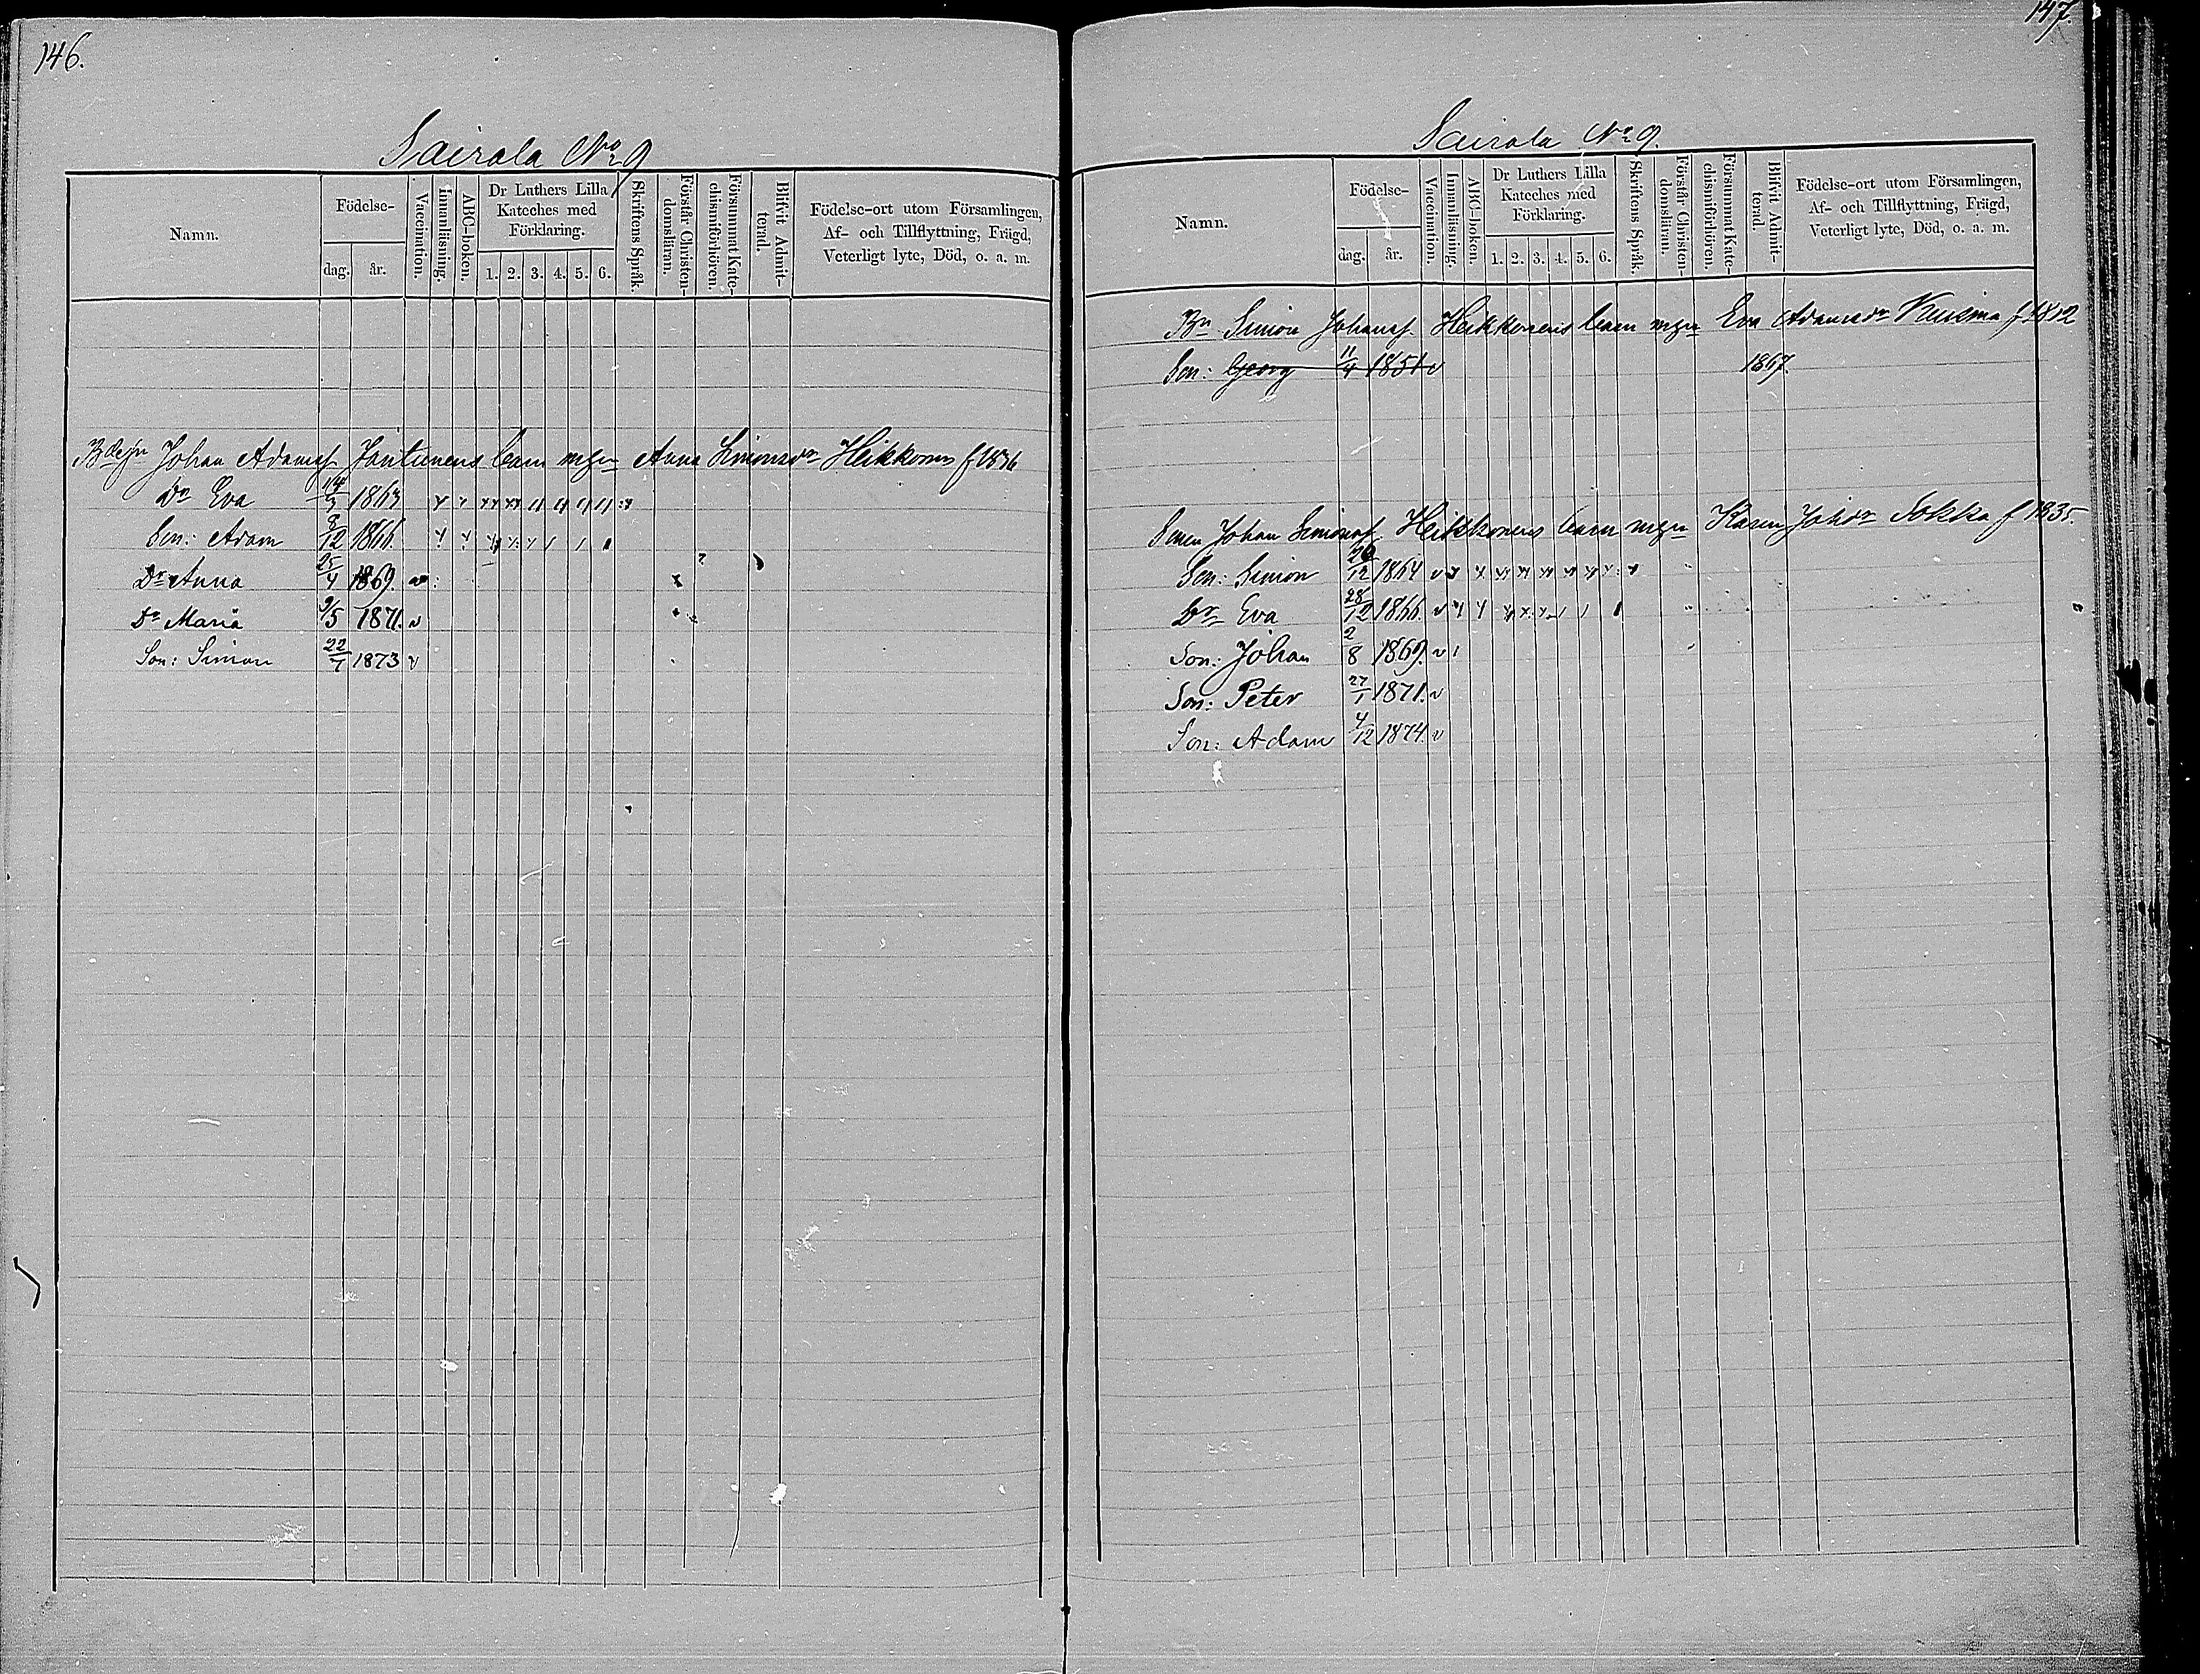 146.
Sairala No 9
Namn.
Födelse-
dag.
år.
Vaccination.
Innanläsning.
ABC-boken.
Dr Luthers Lilla
Kateches med
Förklaring.
1. 2. 3. 4. 5. 6.
Skriftens Språk.
Förstår Christen-
domsläran.
Försummat Kate-
chismiförhören.
Blifvit Admit-
terad.
Födelse-ort utom Församlingen,
Af- och Tillflyttning, Frägd,
Veterligt lyte, Död, o. a. m.
Johan Adamsf Jantunens barn m Anna Simonsdr Heikkonen f 1836
Dr Eva 1863
Son: Adam 8/12 1866.
Dr Anna 25/4 1869.
Dr Maria 9/5 1871. v
Son: Simon 22/7 1873 v
147.
Sairala No 9.
Namn.
Födelse-
dag.
år.
Vaccination.
Innanläsning.
ABC-boken.
Dr Luthers Lilla
Kateches med
Förklaring.
1. 2. 3. 4. 5. 6.
Skriftens Språk.
Förstår Christen-
domsläran.
Försummat Kate-
chismiförhören.
Blifvit Admit-
terad.
Födelse-ort utom Församlingen,
Af- och Tillflyttning, Frägd,
Veterligt lyte, Död, o. a. m.
Bn Simon Johansf. Heikkonens barn m Eva Adamsdr Kuisma f 1812
Son: Georg 11/4 1851 v 1867.
Sonen Johan Simonsf. Heikkonens barn m Karin Johdr Sokka f 1835.
Son: Simon 26/12 1864 v
Dr Eva 28/12 1866. v
Son: Johan 2/8 1869. v
Son: Peter 27/1 1871. v
Son: Adam 4/12 1874. v